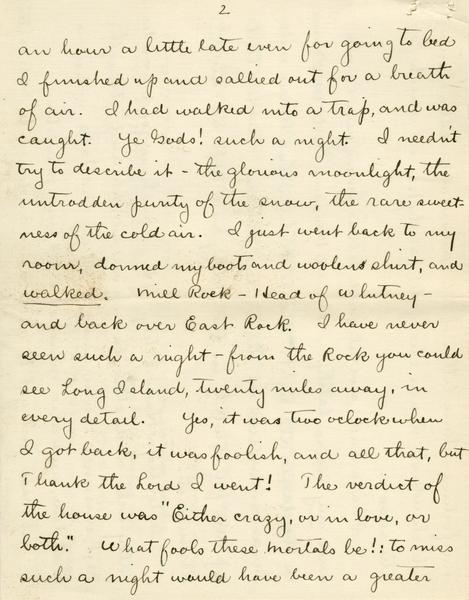 2
an hour a little late even for going to bed
I finished up and sallied out for a breath
of air. I had walked into a trap, and was
caught. Ye Gods! such a night. I needn't
try to describe it - the glorious moonlight, the
untrodden purity of the snow, the rare sweet-
ness of the cold air. I just went back to my
room, donned my boots and woolens shirt, and
walked. Mill Rock - Head of Whitney -
and back over East Rock. I have never
seen such a night - from the Rock you could
see Long Island, twenty miles away, in
every detail. Yes, it was two oclock when
I got back, it was foolish, and all that, but
Thank the Lord I went! The verdict of
the house was "Either crazy, or in love, or
both." What fools these mortals be!: to miss
such a night would have been a greater